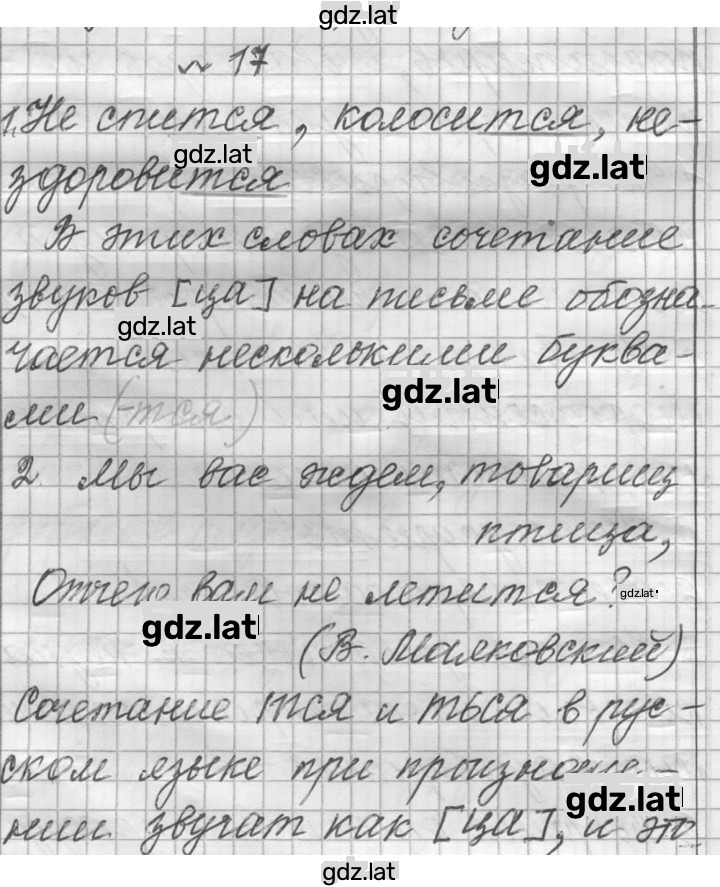 gdz.lat
№ 17
1. Не спится, колосится, не-
gdz.lat
gdz.lat
здоровится
В этих словах сочетание
звуков [ца] на письме обозна-
gdz.lat
чается несколькими буква-
gdz.lat
ми (-тся)
2. Мы вас ждем, товарищ
птица,
Отчего вам не летится?
gdz.lat
gdz.lat
(В. Маяковский)
Сочетание тся и ться в рус-
ском языке при произноше-
gdz.lat
нии звучат как [ца], и это
gdz.lat